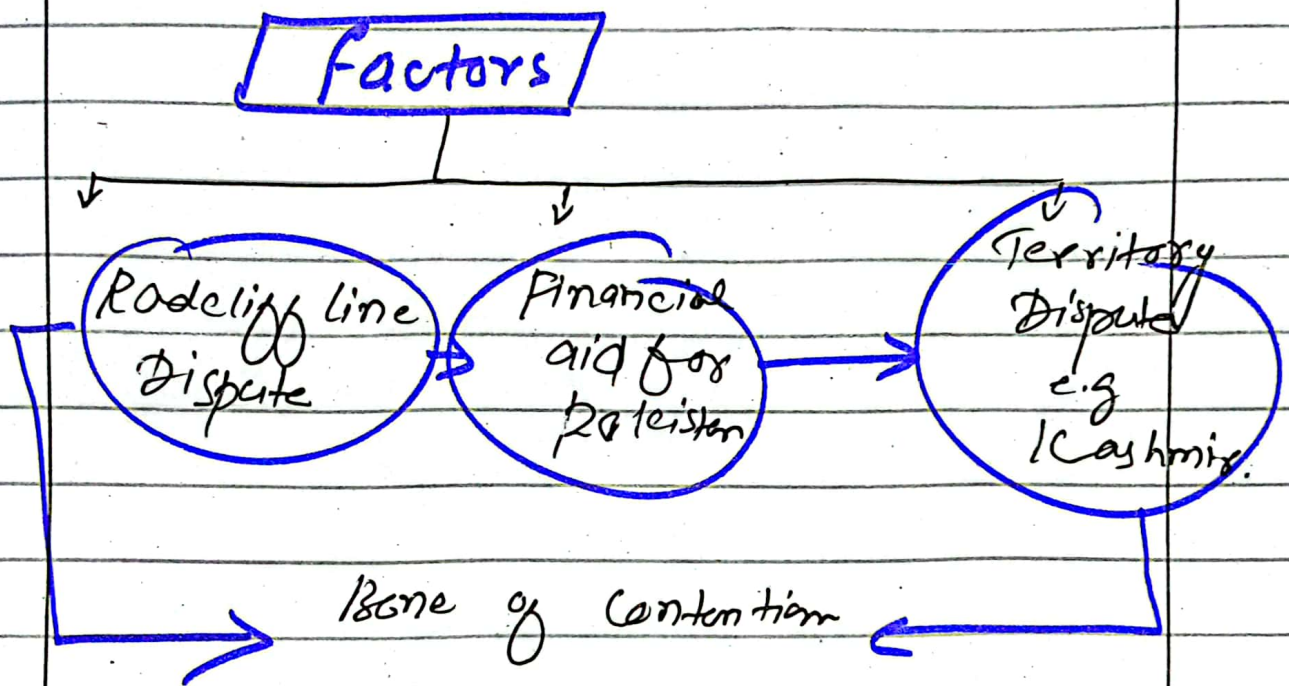 Factors
Radcliff line
Dispute
Financial
aid for
Pakistan
Territory
Dispute
e.g
Kashmir.
Bone of Contention